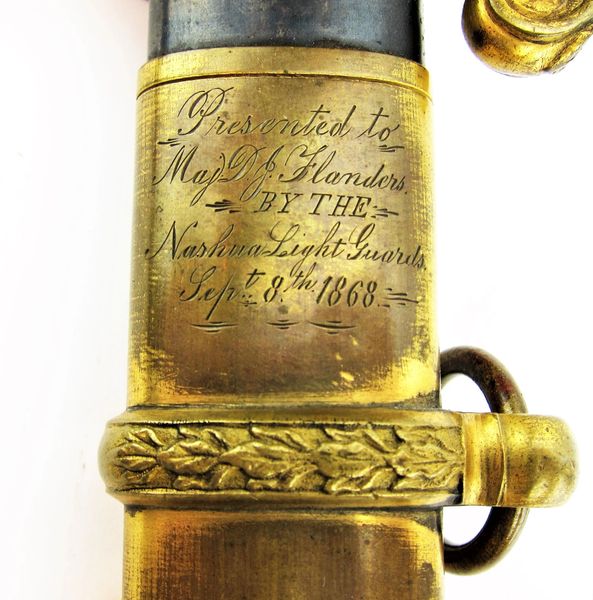 Presented to
Maj D. J. Flanders.
BY THE
Nashua Light Guards.
Sept. 8th. 1868.